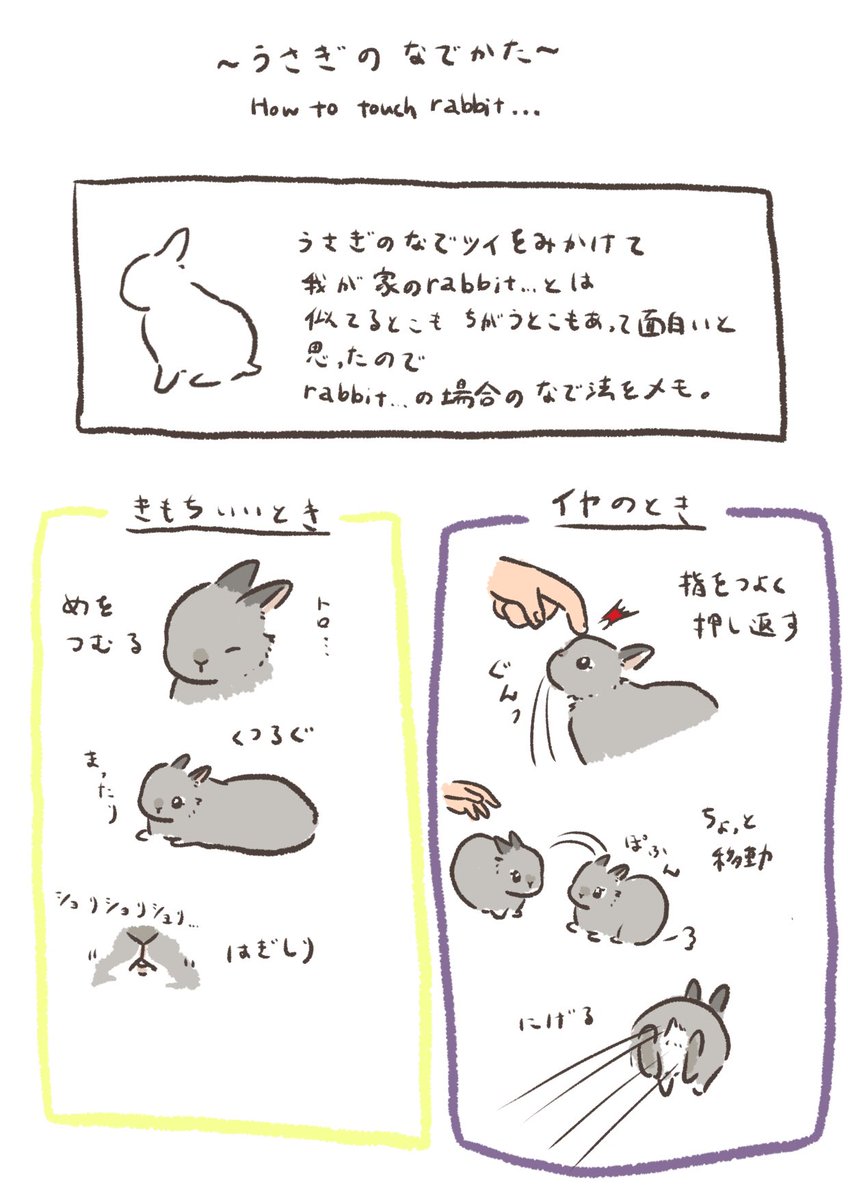 ～うさぎの なでかた～
How to touch rabbit...
うさぎのなでツイをみかけて
我が家のrabbit...とは
似てるとこも ちがうとこもあって面白いと
思ったので
rabbit...の場合の なで法をメモ。
きもちいいとき
めを
つむる
トロ...
くつろぐ
まったり
ショリショリショリ...
はぎしり
イヤのとき
指をつよく
押し返す
ぐんっ
ちょっと
移動
ぽふん
にげる